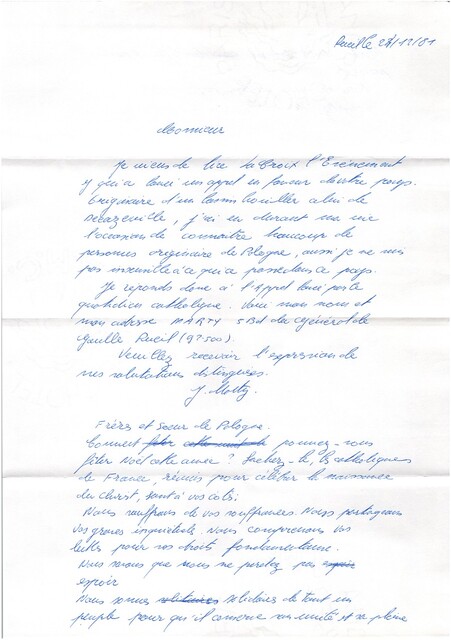 Rueil le 24/12/81
Monsieur
Je viens de lire la Croix l'Evènement
qui a lancé un appel en faveur de votre pays.
Originaire d'un bassin houiller celui de
Decazeville, j'ai eu durant ma vie
l'occasion de connaitre beaucoup de
personnes originaire de Pologne, aussi je ne suis
pas insensible à ce qui a passe dans ce pays.
Je reponds donc à l'Appel lancé par le
quotidien catholique. Voici mon nom et
mon adresse MARTY 5 Bd du Général de
Gaulle Rueil (92500).
Veuillez recevoir l'expression de
mes salutations distinguées.
J. Marty
Frères et Soeur de Pologne.
Comment pouvez-vous
fêter Noël cette année ? Sachez-le, les catholiques
de France, réunis pour célébrer la naissance
du Christ, sont à vos cotés.
Nous souffrons de vos souffrances. Nous partageons
vos graves inquiétudes. Nous comprenons vos
luttes pour vos droits fondamentaux.
Nous savons que vous ne perdez pas espoir
espoir
Nous sommes solidaires de tout un
peuple pour qu'il conserve son unité et sa pleine